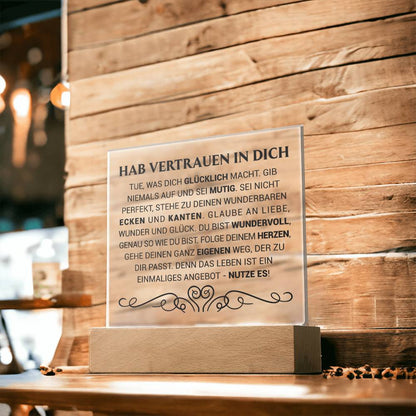 HAB VERTRAUEN IN DICH
TUE, WAS DICH GLÜCKLICH MACHT. GIB
NIEMALS AUF UND SEI MUTIG. SEI NICHT
PERFEKT, STEHE ZU DEINEN WUNDERBAREN
ECKEN UND KANTEN. GLAUBE AN LIEBE,
WUNDER UND GLÜCK. DU BIST WUNDERVOLL,
GENAU SO WIE DU BIST. FOLGE DEINEM HERZEN,
GEHE DEINEN GANZ EIGENEN WEG, DER ZU
DIR PASST. DENN DAS LEBEN IST EIN
EINMALIGES ANGEBOT - NUTZE ES!